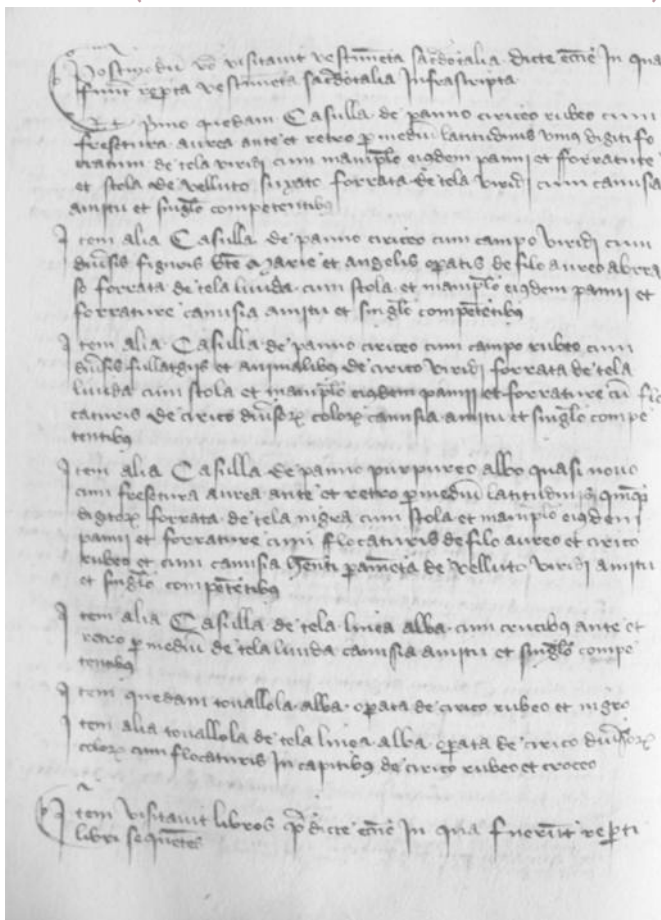 Postmodu vo visitavit vestimeta sacdotalia dicte ecctie In qua
fuerut repta vestimeta sacdotalia Infrascripta
Et pimo quedam Casulla de panno ciriceo rubeo cum
fresetura aurea ante et retro p mediu latitudinis vnius digiti fo
rratum de tela viridi cum maniplo eiusdem panni et forrature
et stola de velluto forrata de tela viridi cum camisia
amitu et singlo competentibus
Item alia Casulla de panno ciriceo cum campo viridi cum
diusis figuris bte Marie et angelis opatis de filo aureo
forrata de tela liuida cum stola et maniplo eiusdem panni et
forrature camisia amitu et singlo competetibus
Item alia Casulla de panno ciriceo cum campo rubeo cum
diusis fullatgijs et animalibus de cirico viridi forrata de tela
liuida cum stola et maniplo eiusdem panni et forrature cu flo
caturis de cirico diusor color camisia amitu et singlo compe
tentibus
Item alia Casulla de panno purpureo albo quasi nouo
cum fresetura aurea ante et retro p mediu latitudinis quinq
digitor forrata de tela nigra cum stola et maniplo eiusdem
panni et forrature cum flocaturis de filo aureo et cirico
rubeo et cum camisia henti pameta de velluto viridi amitu
et singlo competetibus
Item alia Casulla de tela linea alba cum crucibus ante et
retro p mediu de tela liuida camisia amitu et singlo compe
tentibus
Item quedam touallola alba opata de cirico rubeo et nigro
Item alia touallola de tela linea alba opata de cirico diusor
color cum flocaturis In capitibus de cirico rubeo et croceo
Item visitavit libros pdicte ecctie In qua fuerut repti
libri sequetes